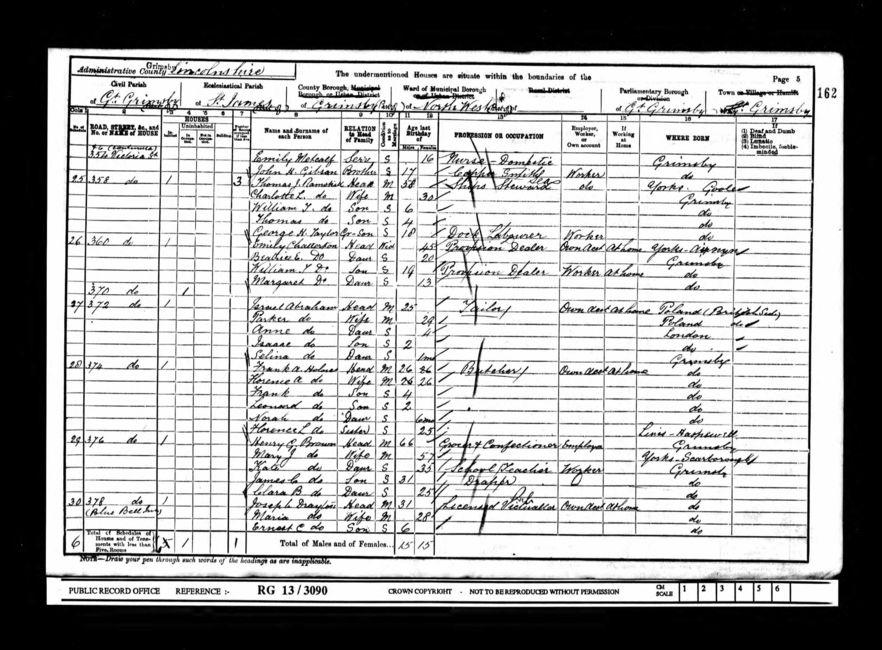 Administrative County Grimsby Lincolnshire The undermentioned Houses are situate within the boundaries of the Page 5
162
Civil Parish Ecclesiastical Parish County Borough, Municipal Borough or Urban District Ward of Municipal Borough or of Urban District Rural District Parliamentary Borough or Division Town or Village or Hamlet
of Gt. Grimsby of St. James of Grimsby of North West of Gt. Grimsby Gt. Grimsby
1 2 3 4 5 6 7 8 9 10 11 12 13 14 15 16 17
No. of ROAD, STREET, &c., and No. or NAME of HOUSE HOUSES Inhabited Uninhabited Name and Surname of each Person RELATION to Head of Family Age last Birthday of Males Females PROFESSION OR OCCUPATION Employer, Worker, or Own account If Working at Home WHERE BORN (1) Deaf and Dumb (2) Blind (3) Lunatic (4) Imbecile, feeble-minded
354 Victoria St Emily Metcalf Serv S 16 Nurse - Domestic Grimsby
John H. Gibson Brother S 17 Copper Smith Worker do
25 358 do 1 3 Thomas J. Head M 58 Ships Steward do Yorks. Goole
Charlotte L. do Wife M 30 Grimsby
William T. do Son S 6 do
Thomas do Son S 4 do
George H. Taylor Gr-Son S 18 Dock Labourer Worker do
26 360 do 1 Emily Chatterton Head Wid 45 Provision Dealer Own acct At home Yorks -
Beatrice E. Do Daur S 20 Grimsby
William T. Do Son S 19 Provision Dealer Worker At home do
Margaret Do Daur S 13 do
370 do 1
27 372 do 1 Israel Abraham Head M 25 Tailor Own acct At home Poland (British Sub)
Parker do Wife M 29 Poland do
Anne do Daur S 4 London
Isaac do Son S 2 do
Selina do Daur S 1m Grimsby
28 374 do 1 Frank A. Holmes Head M 26 Butcher Own acct At home do
Florence A. do Wife M 26 do
Frank do Son S 4 do
Leonard do Son S 2 do
Norah do Daur S 6m do
Florence L. do Sister S 25 Lincs -
29 376 do 1 Henry G. Brown Head M 66 Grocer & Confectioner Employer Grimsby
Mary J. do Wife M 57 Yorks - Scarborough
Kate do Daur S 35 School Teacher Worker Grimsby
James C. do Son S 31 Draper do
Clara B. do Daur S 25 do
30 378 do 1 Joseph Drayton Head M 31 Licensed Victualler Own acct At home do
(Blue Bell Inn) Maria do Wife M 28 do
Ernest C. do Son S 6 do
6 Total of Schedules of Houses and of Tenements with less than Five Rooms 1 1 Total of Males and of Females... 15 15
NOTE—Draw your pen through such words of the headings as are inapplicable.
PUBLIC RECORD OFFICE REFERENCE :- RG 13/3090 CROWN COPYRIGHT - NOT TO BE REPRODUCED WITHOUT PERMISSION CM SCALE 1 2 3 4 5 6